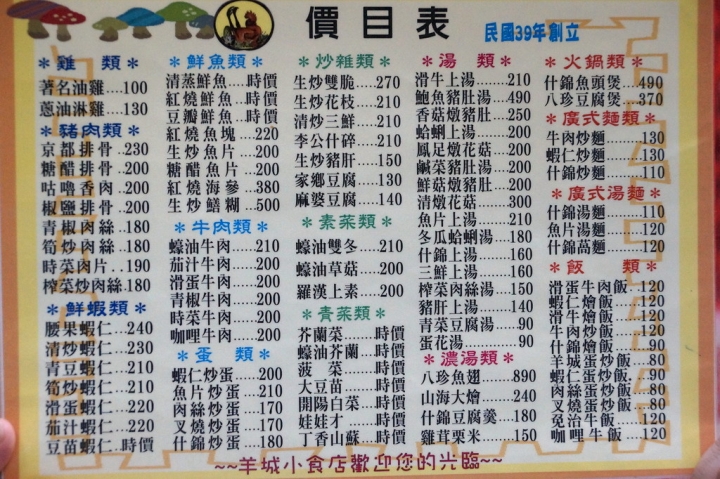 價目表
民國39年創立
＊雞 類＊
著名油雞...100
蔥油淋雞...130
＊豬肉類＊
京都排骨..230
糖醋排骨..200
咕嚕香肉..200
椒鹽排骨..200
青椒肉絲..180
筍炒肉絲..180
時菜肉片..190
榨菜炒肉絲180
＊鮮蝦類＊
腰果蝦仁...240
清炒蝦仁...230
青豆蝦仁...210
筍炒蝦仁...210
滑蛋蝦仁...220
茄汁蝦仁...220
豆苗蝦仁...時價
＊鮮魚類＊
清蒸鮮魚...時價
紅燒鮮魚...時價
豆瓣鮮魚...時價
紅燒魚塊...220
生炒魚片...200
糖醋魚片...200
紅燒海參...380
生炒鱔糊...500
＊牛肉類＊
蠔油牛肉....210
茄汁牛肉....200
滑蛋牛肉....200
青椒牛肉....200
時菜牛肉....200
咖哩牛肉....200
＊蛋 類＊
蝦仁炒蛋...200
魚片炒蛋...210
肉絲炒蛋...170
叉燒炒蛋...170
什錦炒蛋...180
＊炒雜類＊
生炒雙脆....270
生炒花枝....210
清炒三鮮....210
李公什碎....210
生炒豬肝....150
家鄉豆腐....130
麻婆豆腐....140
＊素菜類＊
蠔油雙冬...210
蠔油草菇...200
羅漢上素...200
＊青菜類＊
芥蘭菜....時價
蠔油芥蘭...時價
菠 菜....時價
大豆苗....時價
開陽白菜...時價
娃娃才....時價
丁香山蘇...時價
＊湯 類＊
滑牛上湯......210
鮑魚豬肚湯....490
香菇燉豬肚....250
蛤蜊上湯......200
鳳足燉花菇....300
鹹菜豬肚湯....200
鮮菇燉豬肚....200
清燉花菇......300
魚片上湯......210
冬瓜蛤蜊湯....180
什錦上湯......160
三鮮上湯......160
榨菜肉絲湯....150
豬肝上湯......140
青菜豆腐湯....90
蛋花湯........90
＊濃湯類＊
八珍魚翅....890
山海大燴....240
什錦豆腐羹..180
雞茸栗米....150
＊火鍋類＊
什錦魚頭煲...490
八珍豆腐煲...370
＊廣式麵類＊
牛肉炒麵......130
蝦仁炒麵......130
什錦炒麵......110
＊廣式湯麵＊
什錦湯麵.....110
魚片湯麵.....120
什錦窩麵.....120
＊飯 類＊
滑蛋牛肉飯..120
蝦仁燴飯....120
滑牛燴飯....120
牛肉炒飯....120
什錦燴飯.....90
羊城蛋炒飯...80
蝦仁蛋炒飯..90
肉絲蛋炒飯..80
叉燒蛋炒飯..80
免治牛飯....120
咖哩牛飯....120
~~羊城小食店歡迎您的光臨~~